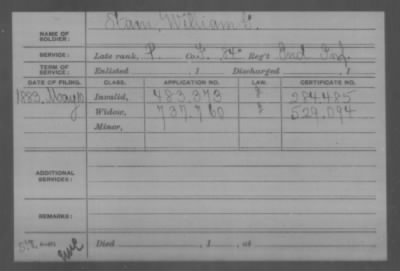 NAME OF SOLDIER: Starr, William C.
SERVICE: Late rank, P. Co. G, 84" Reg't Ind. Inf.
TERM OF SERVICE: Enlisted , 1 Discharged , 1
DATE OF FILING. CLASS. APPLICATION NO. LAW. CERTIFICATE NO.
1883, May Invalid, 483,373 284,485
Widow, 737,760 529,094
Minor,
ADDITIONAL SERVICES:
REMARKS:
Died , 1 , at